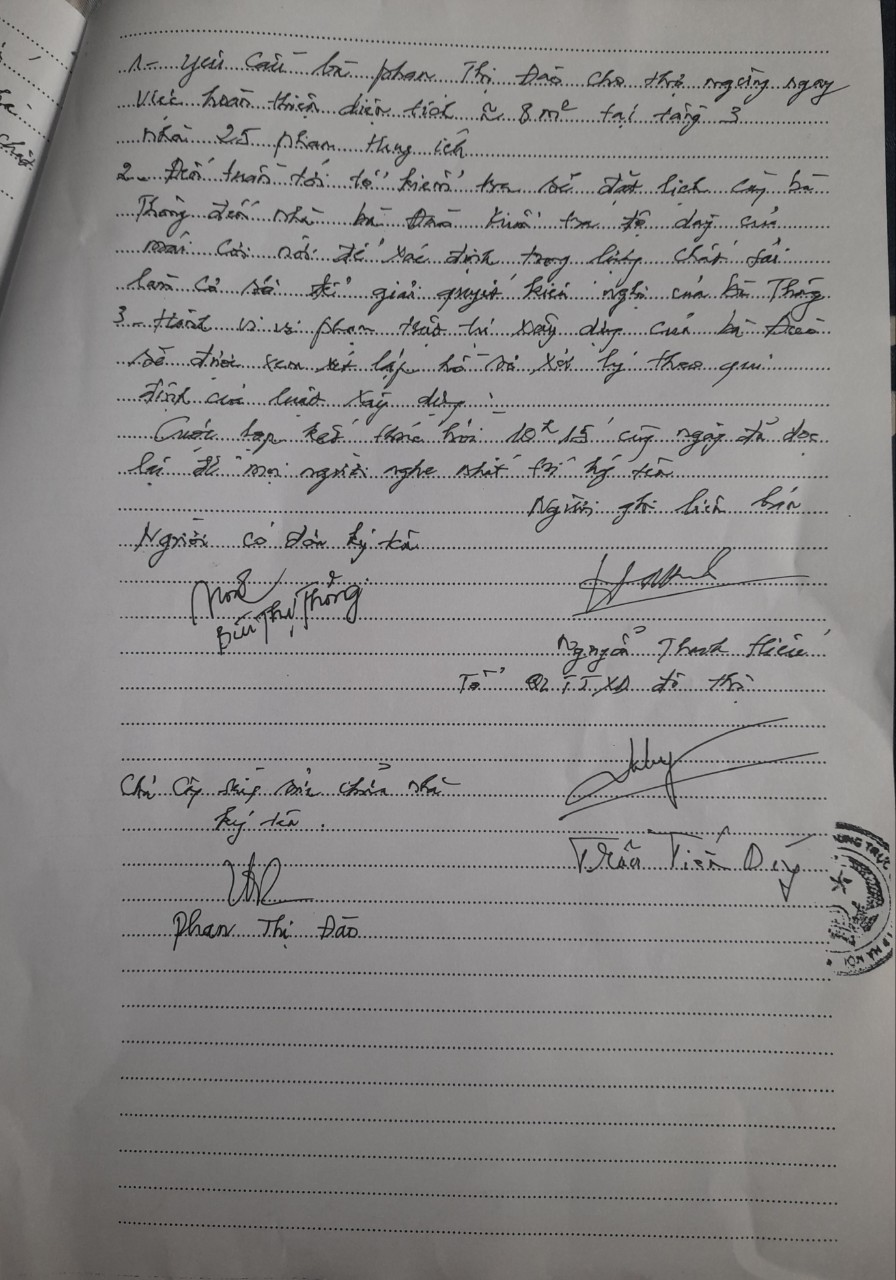 1- Yêu cầu bà phan Thị Đào cho thợ ngừng ngay
việc hoàn thiện diện tích ≈ 8 m² tại tầng 3
nhà 25 phan Huy ích
2- Đến tuần tới tổ kiểm tra sẽ đặt lịch cùng bà
Thông đến nhà bà Đào kiểm tra độ dày của
mái cơi nới để xác định trọng lượng chất tải
làm cơ sở để giải quyết kiến nghị của bà Thông
3- Hành vi vi phạm trật tự xây dựng của bà Đào
sẽ được xem xét lập hồ sơ xử lý theo qui
định của luật xây dựng
Cuộc họp kết thúc hồi 10h 15' cùng ngày đã đọc
lại để mọi người nghe nhất trí ký tên
Người ghi biên bản
Người có đơn ký tên
Bùi Thị Thông
Nguyễn Thanh Hiếu
Tổ QL TTXD đô thị
Chủ sửa chữa nhà
ký tên.
Trần Tiến
Phan Thị Đào
HÀ NỘI